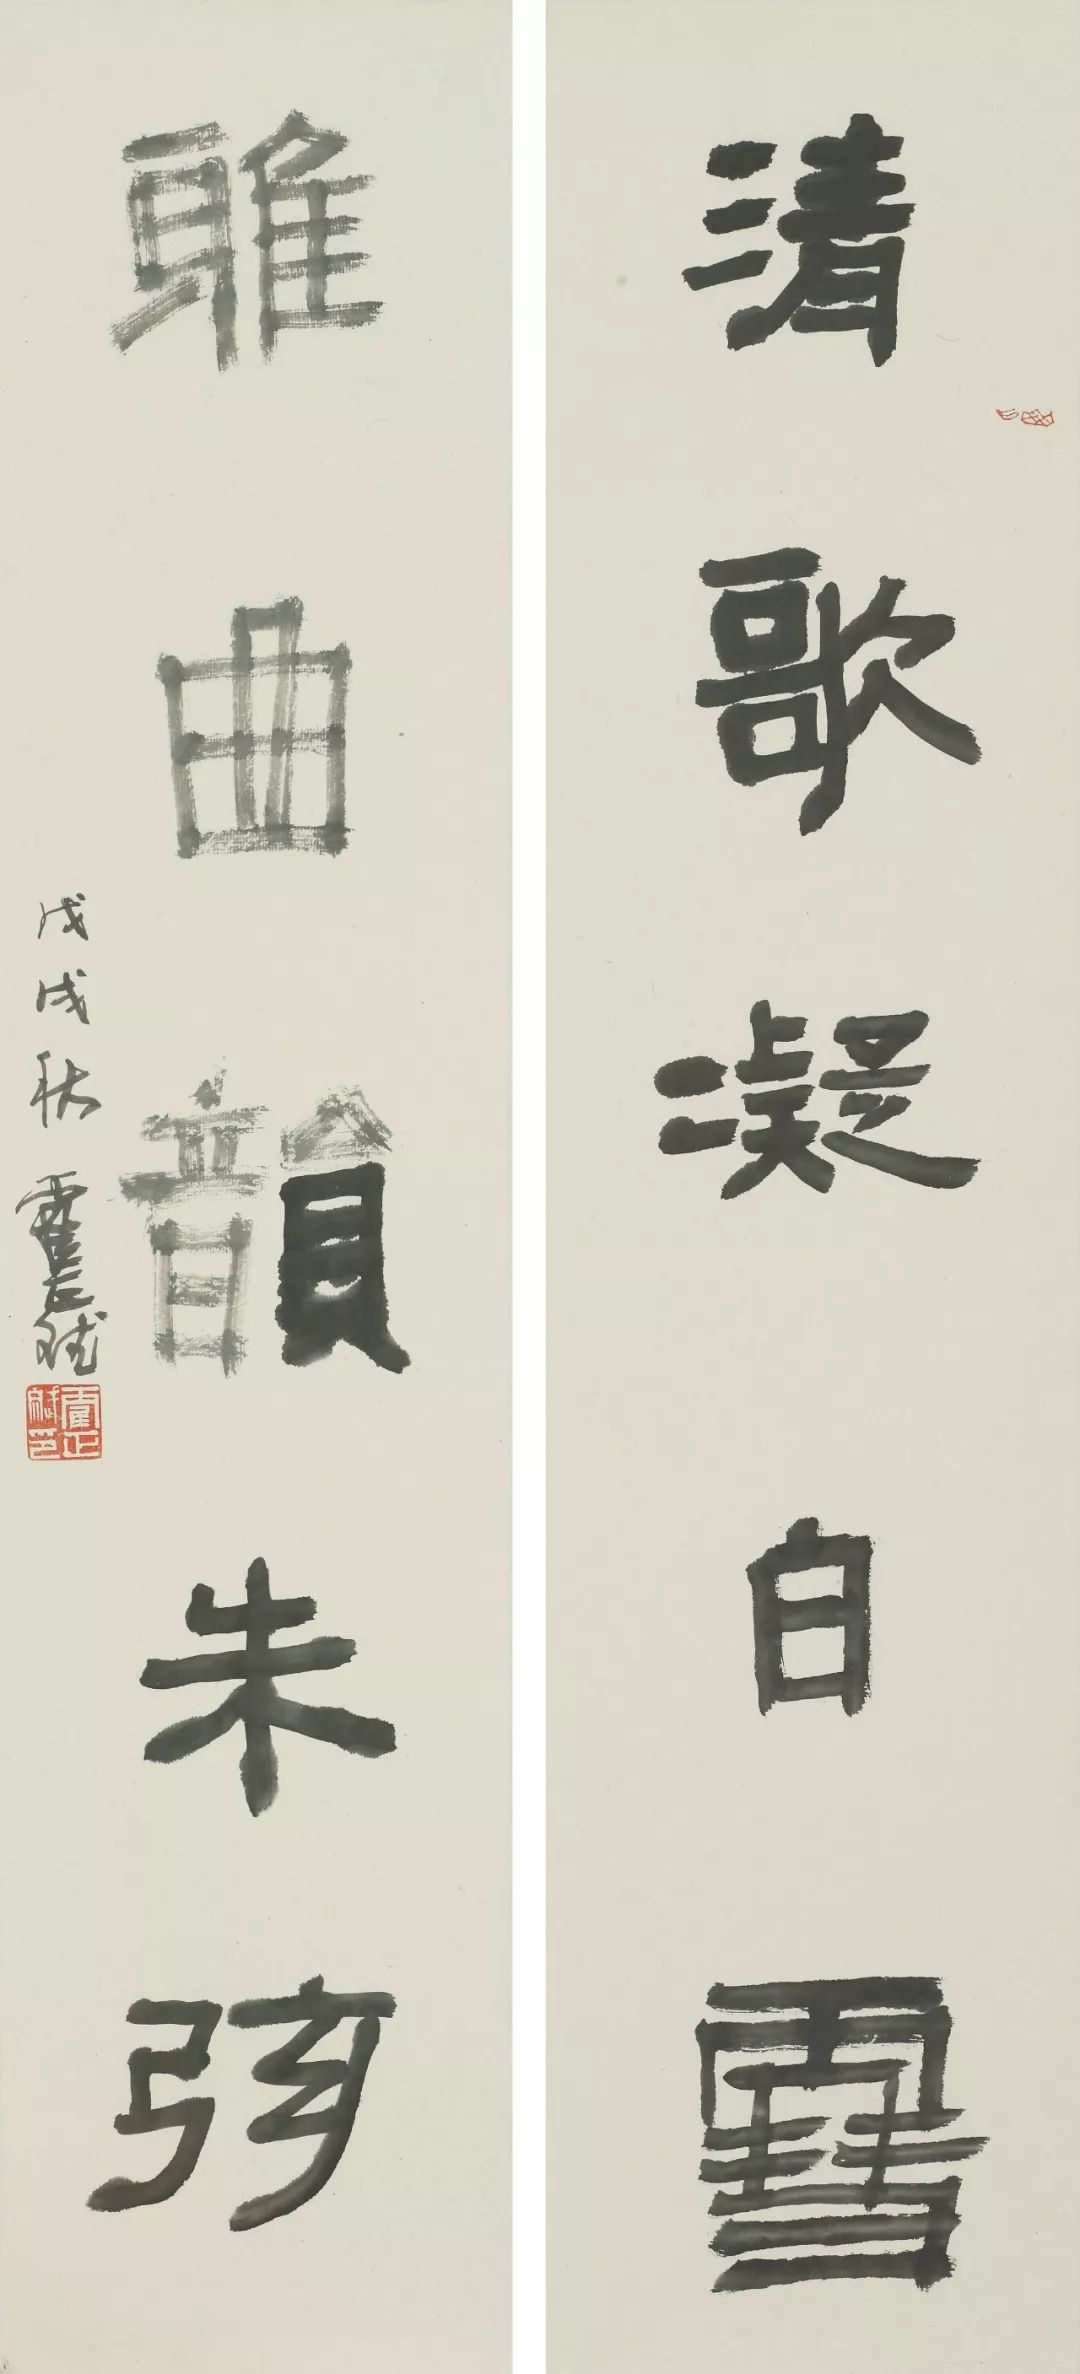 清歌凝白雪
雅曲韻朱弦
戊戌秋